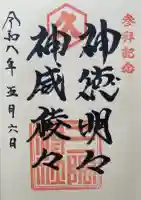 参拝記念
神徳明々
神威赫々
令和八年五月六日
久